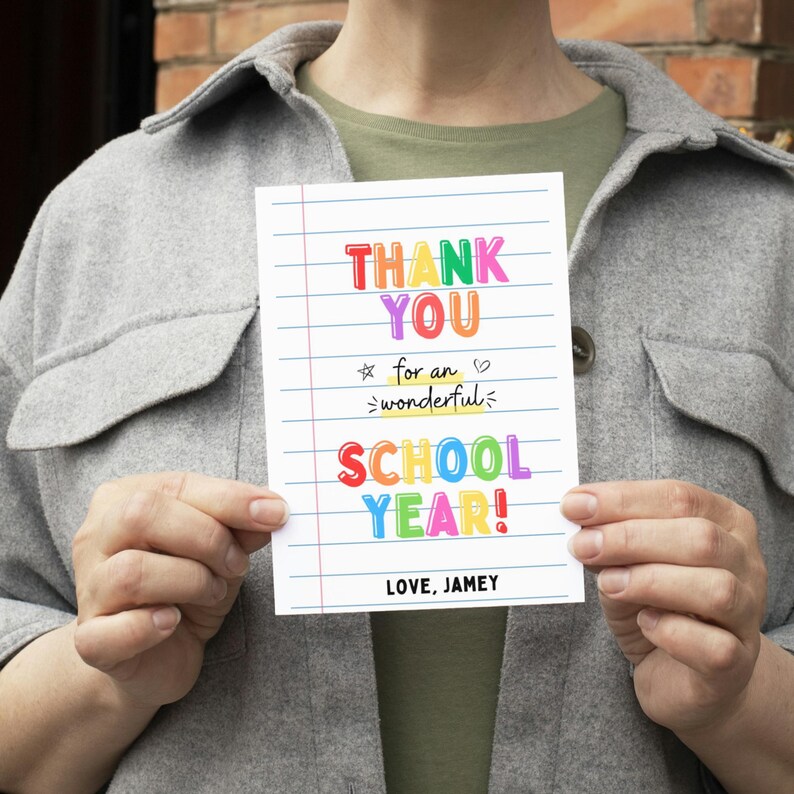 THANK
YOU
for an
wonderful
SCHOOL
YEAR!
LOVE, JAMEY